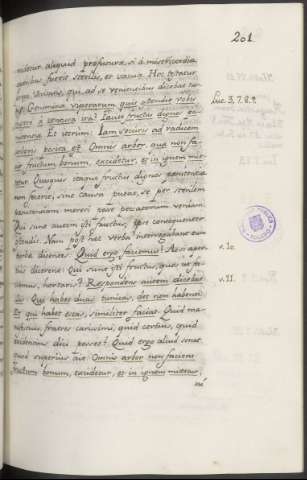 201
videtur aliquid profutura, si à misericordia
operibus fueris sterilis, et vacua. Hoc testatur
ergo Veritatis, qui ad se venientibus dicebat tur
bis: Genimina viperarum quis ostendit vobis
fugere à ventura ira? Facite fructus dignos pœ
nitentia. Et iterum: Iam securis ad radicem
arboris posita est. Omnis arbor, quæ non fa
cit fructum bonum, excidetur, et in ignem mit
tetur. Quisquis itaque fructus dignos pœnitentia
non facere, sine causa putat, se per sterilem
pœnitentiam mereri posse peccatorum veniam.
Qui sunt autem isti fructus, ipse consequenter
ostendit. Nam post hæc verba interrogabant eum
turbæ dicentes: Quid ergo faciemus? Ac si aper
tius dicerent: Qui sunt isti fructus, quos ut fa
ciamus, hortaris? Respondens autem dicebat
illis: Qui habet duas tunicas, det non habenti.
Et qui habet escas, similiter faciat. Quid ma
nifestius, fratres carissimi, quid certius, quid
evidentius dici potest? Quid ergo aliud sonat,
quod superius ait: Omnis arbor non faciens
fructum bonum, excidetur, et in ignem mittetur,
Luc. 3. 7. 8. 9.
v. 10
v. 11.